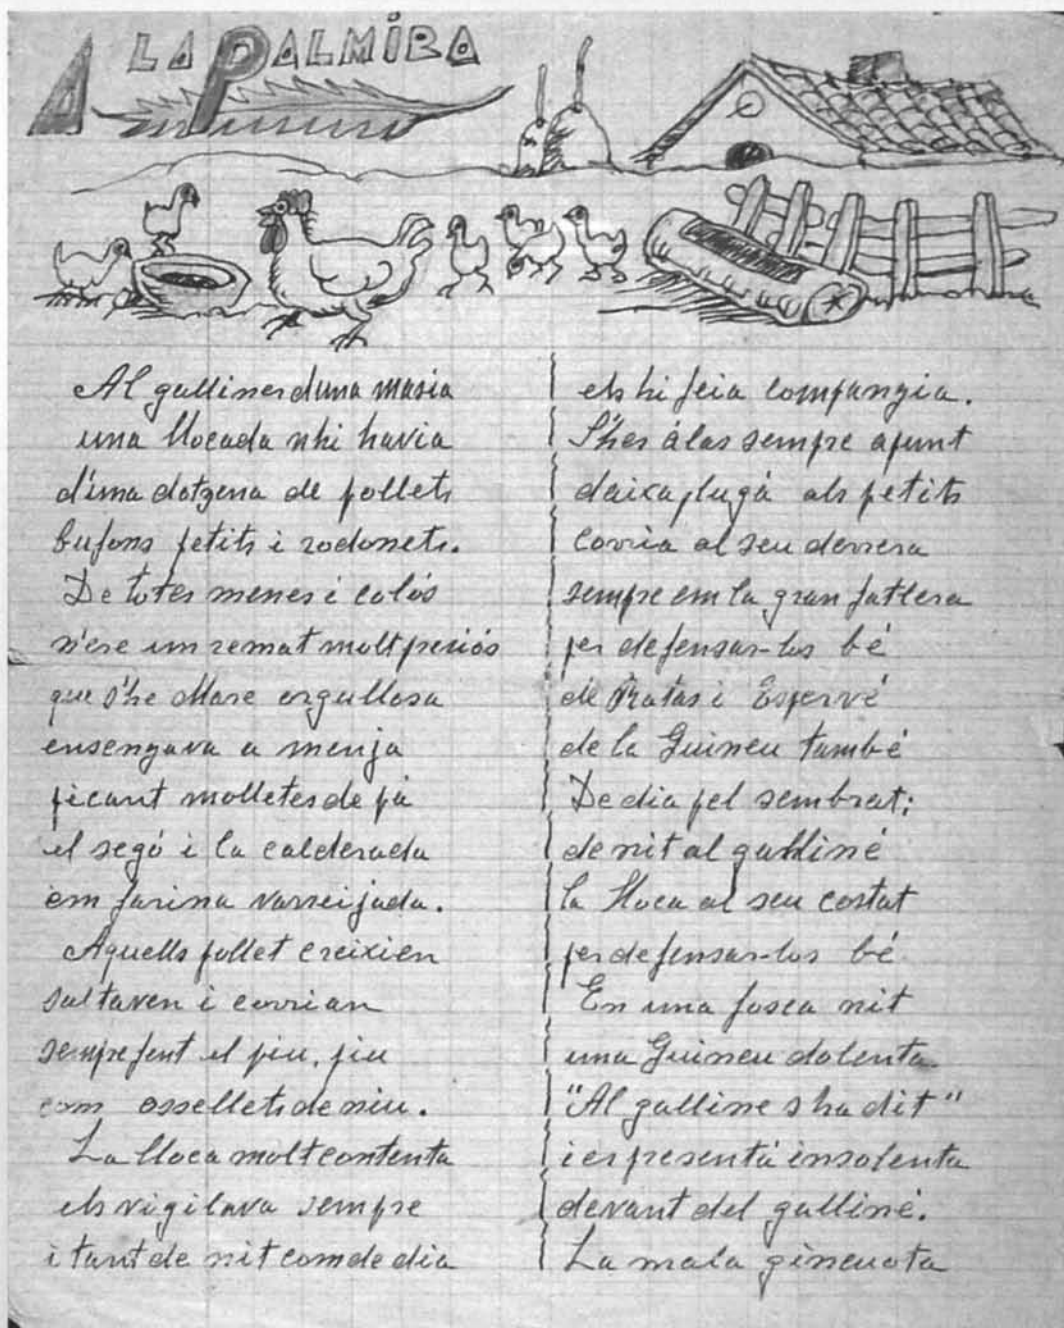 A LA PALMIRA
Al galliner duna masia
una llocada nhi havia
d'una dotzena de pollets
bufons petits i rodonets.
De totes menes i colós
n'ere un remat molt preciós
que s'he Mare orgullosa
ensengava a menja
picant molletes de pá
el segó i la calderada
em farina varreijada.
Aquells pollet creixien
saltaven i corrian
sempre fent el piu, piu
com ossellets de niu.
La lloca molt contenta
els vigilava sempre
i tant de nit com de dia
els hi feia compangia.
S'hes álas sempre apunt
daixaplugá als petits
Corria al seu derrera
sempre em la gran fatlera
per defensar-los bé
de Ratas i Esparvé
de la Guineu també
De dia pel sembrat;
de nit al galliné
la lloca al seu costat
per defensar-los bé
En una fosca nit
una Guineu dolenta
"Al galline s ha dit"
i es presentá insolenta
devant del galliné.
La mala gineuota